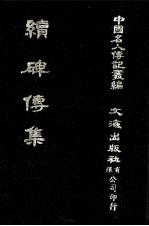 中國名人傳記叢編
續碑傳集
文海出版社有限公司印行